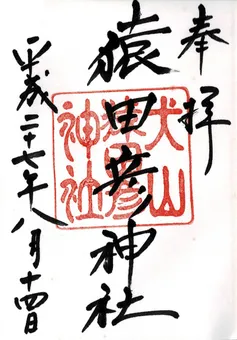 奉拝
猿田彦神社
犬山
猿田彦
神社
平成二十七年八月十四日